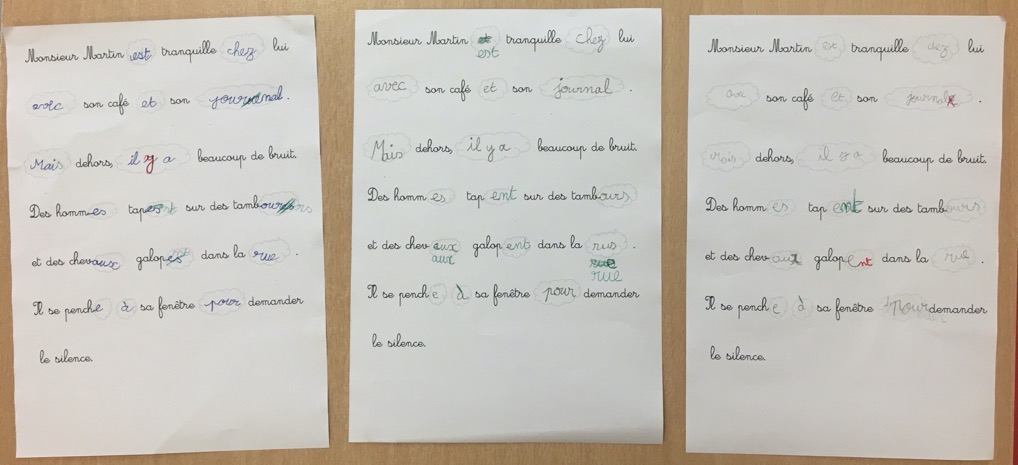 Monsieur Martin est tranquille chez lui
avec son café et son journal.
Mais dehors, il y a beaucoup de bruit.
Des hommes tapent sur des tambours
et des chevaux galopest dans la rue.
Il se penche à sa fenêtre pour demander
le silence.
Monsieur Martin tranquille chez lui
est
avec son café et son journal.
Mais dehors, il y a beaucoup de bruit.
Des hommes tapent sur des tambours
et des chevaux galopent dans la rus.
aux rue
rue
Il se penche à sa fenêtre pour demander
le silence.
Monsieur Martin est tranquille chez lui
avc son café et son journal.
Mais dehors, il y a beaucoup de bruit.
Des hommes tapent sur des tambours
et des chevaux galopent dans la rue.
Il se penche à sa fenêtre pour demander
le silence.